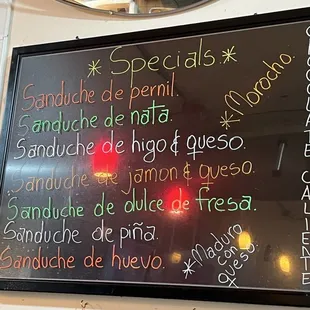 * Specials. *
Sanduche de pernil.
Sanduche de nata.
Sanduche de higo & queso.
Sanduche de jamon & queso.
Sanduche de dulce de fresa.
Sanduche de piña.
Sanduche de huevo.
*Morocho.
*Maduro
con
queso.
CHOCOLATE CALIENTE